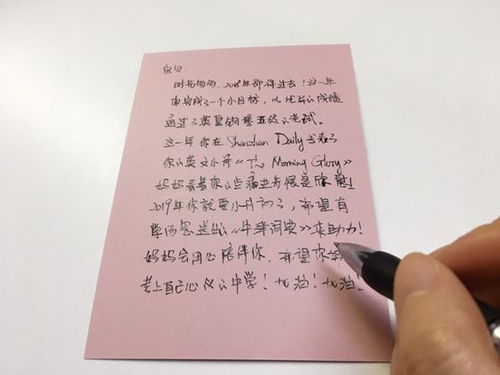 宝贝:
时光匆匆,2018年即将过去!这一年
你完成了一个小目标,以优异的成绩
通过了英皇钢琴五级的考试。
这一年你在 Shenzhen Daily 发表了
你的英文小诗《The Morning Glory》
妈妈看着你的点滴进步很是欣慰!
2019年你就要小升初了,希望肖
老师寄送的《牛津词典》来助力!
妈妈会用心陪伴你,希望你
考上自己心仪的中学!加油!加油!